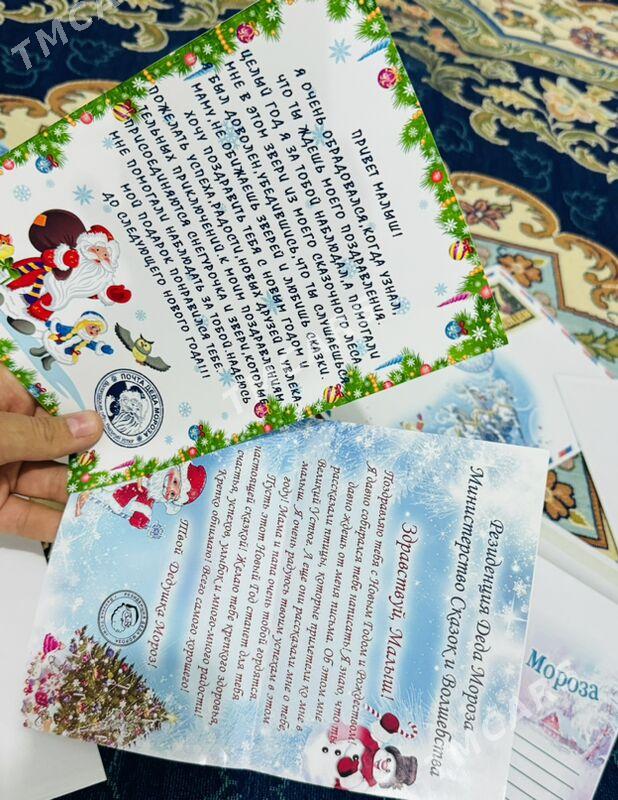 ПРИВЕТ МАЛЫШ!
Я ОЧЕНЬ ОБРАДОВАЛСЯ, КОГДА УЗНАЛ,
ЧТО ТЫ ЖДЕШЬ МОЕГО ПОЗДРАВЛЕНИЯ.
ЦЕЛЫЙ ГОД Я ЗА ТОБОЙ НАБЛЮДАЛ, А ПОМОГАЛИ
МНЕ В ЭТОМ ЗВЕРИ ИЗ МОЕГО СКАЗОЧНОГО ЛЕСА.
Я БЫЛ ДОВОЛЕН, УБЕДИВШИСЬ, ЧТО ТЫ СЛУШАЕШЬСЯ
МАМУ, НЕ ОБИЖАЕШЬ ЗВЕРЕЙ И ЛЮБИШЬ СКАЗКИ.
ХОЧУ ПОЗДРАВИТЬ ТЕБЯ С НОВЫМ ГОДОМ И
ПОЖЕЛАТЬ УСПЕХА, РАДОСТИ, НОВЫХ ДРУЗЕЙ И УВЛЕКА
ТЕЛЬНЫХ ПРИКЛЮЧЕНИЙ. К МОИМ ПОЗДРАВЛЕНИЯМ
ПРИСОЕДИНЯЮТСЯ СНЕГУРОЧКА И ЗВЕРИ, КОТОРЫЕ
МНЕ ПОМОГАЛИ НАБЛЮДАТЬ ЗА ТОБОЙ. НАДЕЮСЬ
МОЙ ПОДАРОК ПОНРАВИЛСЯ ТЕБЕ.
ДО СЛЕДУЮЩЕГО НОВОГО ГОДА!!!
ПОЧТА ДЕДА МОРОЗА
Резиденция Деда Мороза
Министерство Сказок и Волшебства
Здравствуй, Малыш!
Поздравляю тебя с Новым Годом и Рождеством!
Я давно собирался тебе написать! Я знаю, что ты
давно ждешь от меня письма. Об этом мне
рассказали птицы, которые прилетали ко мне в
Великий Устюг. А еще они рассказали мне о тебе,
малыш. Я очень радуюсь твоим успехам в этом
году! Мама и папа очень тобой гордятся.
Пусть этот Новый Год станет для тебя
настоящей сказкой! Желаю тебе крепкого здоровья,
счастья, успехов, улыбок и много-много радости!
Крепко обнимаю! Всего самого хорошего!
Твой Дедушка Мороз!
Мороза